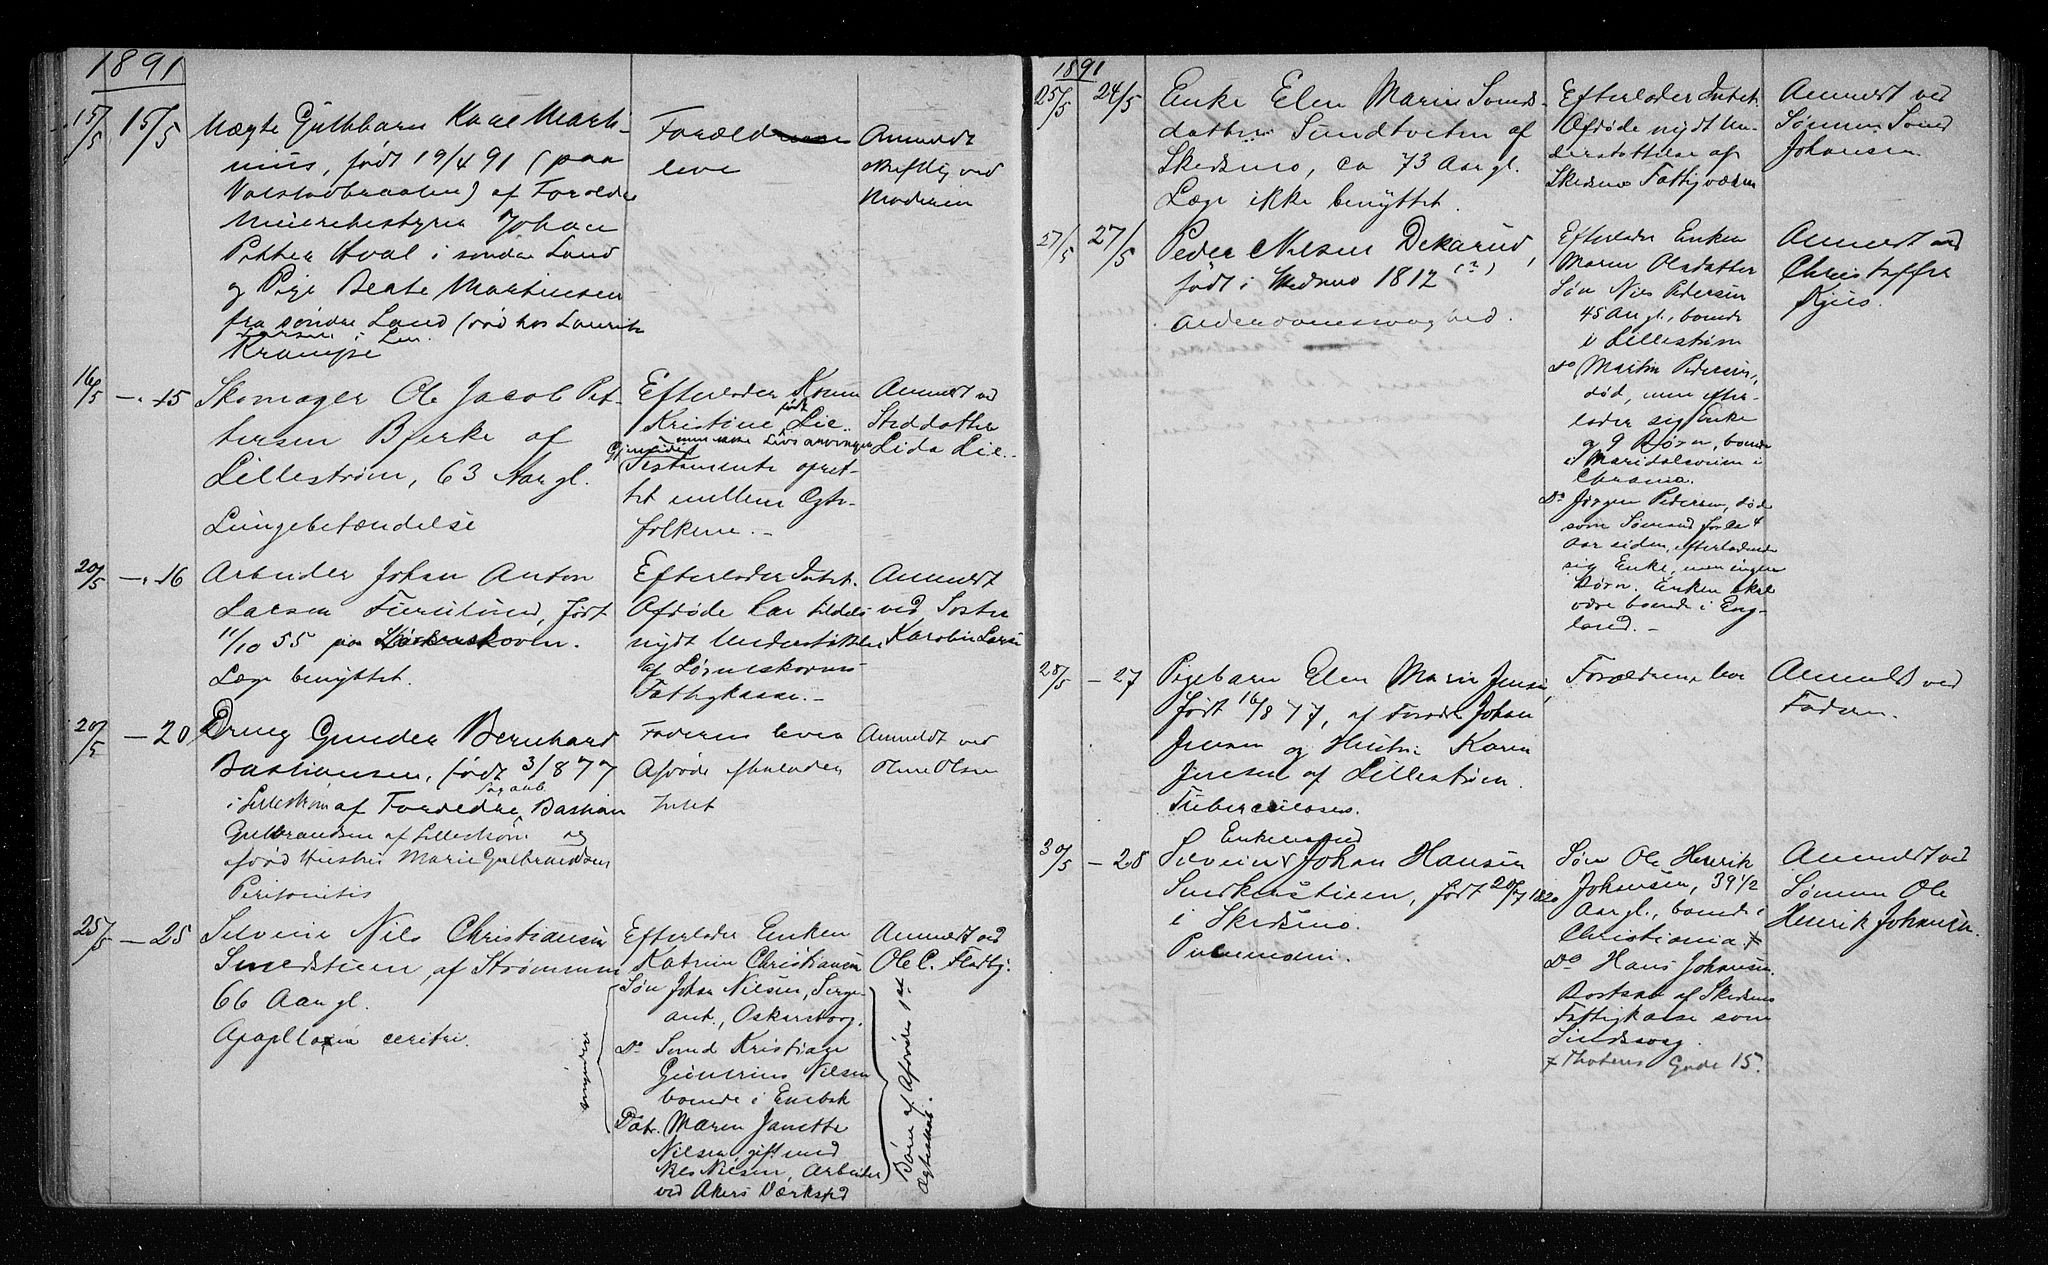 1891
15/5 15/5 Uægte Gutbarn Karl Marti-
nius, født 19/4 91 (paa
af Forældre
Meieribestyrer Johan
Petter Hval i søndre Land
og Pige Beate Martinsen
fra søndre Land (død hos Laurits
Larsen i
Krampe
Forældrene
leve
Anmeldt
skriftlig ved
Moderen
16/5 -"- 15 Skomager Ole Jacob Pet-
tersen Bjerke af
Lillestrøm, 63 Aar gl.
Lungebetændelse
Efterlader Konen
Kristine født Lie
men ikke Livsarvinger
Gjensidigt
Testamente opret-
tet mellem Egte-
folkene. -
Anmeldt ved
Steddatter
Lida Lie.
20/5 -"- 16 Arbeider Johan Anton
Larsen Furulund, født
11/10 55 paa Lørenskoven.
Læge benyttet.
Efterlader Intet.
Afdøde har tildels
nydt Understøttelse
af Lørenskovens
Fattigkasse. -
Anmeldt
ved Søster
Karoline Larsen
20/5 - 20 Dreng Gunder Bernhard
Bastiansen, født 3/8 77
i Lillestrøm af Forældre Bastian
Gulbrandsen af Lillestrøm og
afdød Hustru Marie Gulbrandsen
Peritonitis
Faderen lever
Afdøde efterlader
Intet
Anmeldt ved
Olsen
25/5 - 25 Inderst Nils Christiansen
Smedstuen af Strømmen
66 Aar gl.
Apoplexia cerebri.
Efterlader Enken
Katrine Christiansen
Søn Johan Nilsen, Serge-
ant, Oskarsborg.
Do Smed Kristian
Nilsen
boende i Enebak
Datr. Maren Janette
Nilsen gift med
Nils Nilsen, Arbeider
ved Akers Værksted
myndige
Børn af Afdødes 1ste
Ægteskab.
Anmeldt ved
Ole C. Fladby.
1891
25/5 24/5 Enke Elen Marie Svends-
datter Sundtveten af
Skedsmo, ca 73 Aar gl.
Læge ikke benyttet.
Efterlader Intet.
Afdøde nydt Un-
derstøttelse af
Skedsmo Fattigvæsen
Anmeldt ved
Sønnen Svend
Johansen.
27/5 27/5 Peder Nilsen Dekarud,
født i Skedsmo 1812 (?)
Alderdomssvaghed.
Efterlader Enken
Maren Olsdatter
Søn Nils Pedersen
45 Aar gl., boende
i Lillestrøm
Do Martin Pedersen,
død, men efter-
lader sig Enke
og 9 Børn, boende
i Maridalsveien i
Chrania.
Do Jørgen Pedersen, døde
som Sømand for ca 4
Aar siden, efterladende
sig Enke, men ingen
Børn. Enken skal
være boende i Eng-
land. -
Anmeldt ved
Christoffer
Kjus.
28/5 - 27 Pigebarn Elen Marie Jensen,
født 16/8 77, af Forældre Johan
Jensen og Hustru Karen
Jensen af Lillestrøm.
Tuberculoses.
Forældrene leve
Anmeldt ved
Faderen.
30/5 - 28 Enkemand
Inderst Johan Hansen
Smedkerstuen, født 20/7 1820
i Skedsmo.
Pneumoni.
Søn Ole Henrik
Johansen, 39 1/2
Aar gl., boende i
Christiania x
Do Hans Johansen
Bortsat af Skedsmo
Fattigkasse som
Sindssvag.
x Thoteres Gade 15.
Anmeldt ved
Sønnen Ole
Henrik Johansen.